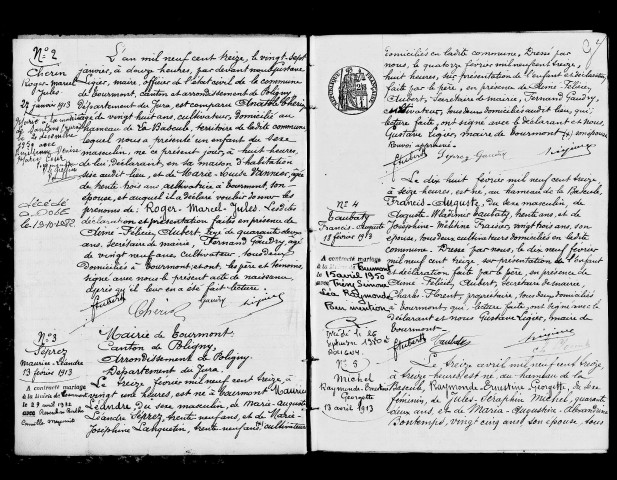 N° 2
Cherin
Roger-Marcel
Jules
29 janvier 1913
décédé
à Dole
le 19-10-
L'an mil neuf cent treize, le vingt-sept
janvier, à douze heures, par devant nous Gustave
Ligier, maire, officier de l'état civil de la commune
de Tourmont, canton et arrondissement de Poligny
Département du Jura, est comparu Anatole Cherin,
âgé de vingt huit ans, cultivateur, domicilié au
hameau de la Bascule, territoire de ladite commune
lequel nous a présenté un enfant du sexe
masculin, né ce présent jour, à huit heures,
de lui déclarant, en sa maison d'habitation
sise audit lieu, et de Marie-Louise Vannier, âgée
de trente huit ans, cultivatrice à Tourmont, son
épouse, et auquel il a déclaré vouloir donner les
prénoms de: Roger-Marcel-Jules. Lesdites
déclaration et présentation faites en présence de
Aimé-Félicy Aubert, âgé de quarante deux
ans, secrétaire de mairie, Fernand Gaudry, âgé
de vingt neuf ans, cultivateur, tous deux
domiciliés à Tourmont, et ont, les père et témoins,
signé avec nous le présent acte de naissance,
après qu'il leur en a été fait lecture.
Aubert Gaudry
Cherin
N° 3
Seprez
Maurice-Léandre
13 février 1913
A contracté mariage
à la Mairie de
le 29 avril 1932
avec
Mairie de Tourmont.
Canton de Poligny,
Arrondissement de Poligny
Département du Jura.
Le treize février mil neuf cent treize, à
vingt une heures, est né à Tourmont Maurice
Léandre, du sexe masculin, de Marie-Auguste
Léandre Seprez, trente neuf ans, et de Marie-
Joséphine, trente neuf ans, cultivateurs
37
domiciliés en ladite commune. Dressé par
nous, le quatorze février mil neuf cent treize,
huit heures, sur présentation de l'enfant et déclaration
faite par le père, en présence de Aimé-Félicy
Aubert, Secrétaire de mairie, Fernand Gaudry,
cultivateur, tous deux domiciliés audit lieu, qui,
lecture faite, ont signé avec le déclarant et Nous
Gustave Ligier, maire de Tourmont
Aubert Seprez Gaudry
RÉPUBLIQUE FRANÇAISE
N° 4
Francis-Auguste
18 février 1913
A contracté mariage
15 avril 1950
avec
Simone
Pour mention
Décédé le 26
Le dix huit février mil neuf cent treize, à
seize heures, est né, au hameau de la Bascule,
Francis-Auguste, du sexe masculin, de
Auguste Wladimir, trente ans, et de
Joséphine-Delphine, vingt ans, son
épouse, tous deux cultivateurs domiciliés en cette
commune. Dressé par nous, le dix neuf février
mil neuf cent treize sur présentation de l'enfant
et déclaration faite par le père, en présence de
Aimé-Félicy Aubert, Secrétaire de mairie,
Charles Florent, propriétaire, tous deux domiciliés
à Tourmont, qui, lecture faite, ont signé avec le
déclarant et nous Gustave Ligier, maire de
Tourmont.
Aubert
N° 5
Michel
Raymonde Ernestine
Georgette
13 avril 1913
Le treize avril mil neuf cent treize,
à treize heures, est née au hameau de la
Bascule, Raymonde-Ernestine
Georgette, du sexe
féminin, de Jules-Séraphin Michel, quarante
deux ans, et de Maria-Augustine-Alexandrine
Bontemps, vingt cinq ans, son épouse, tous